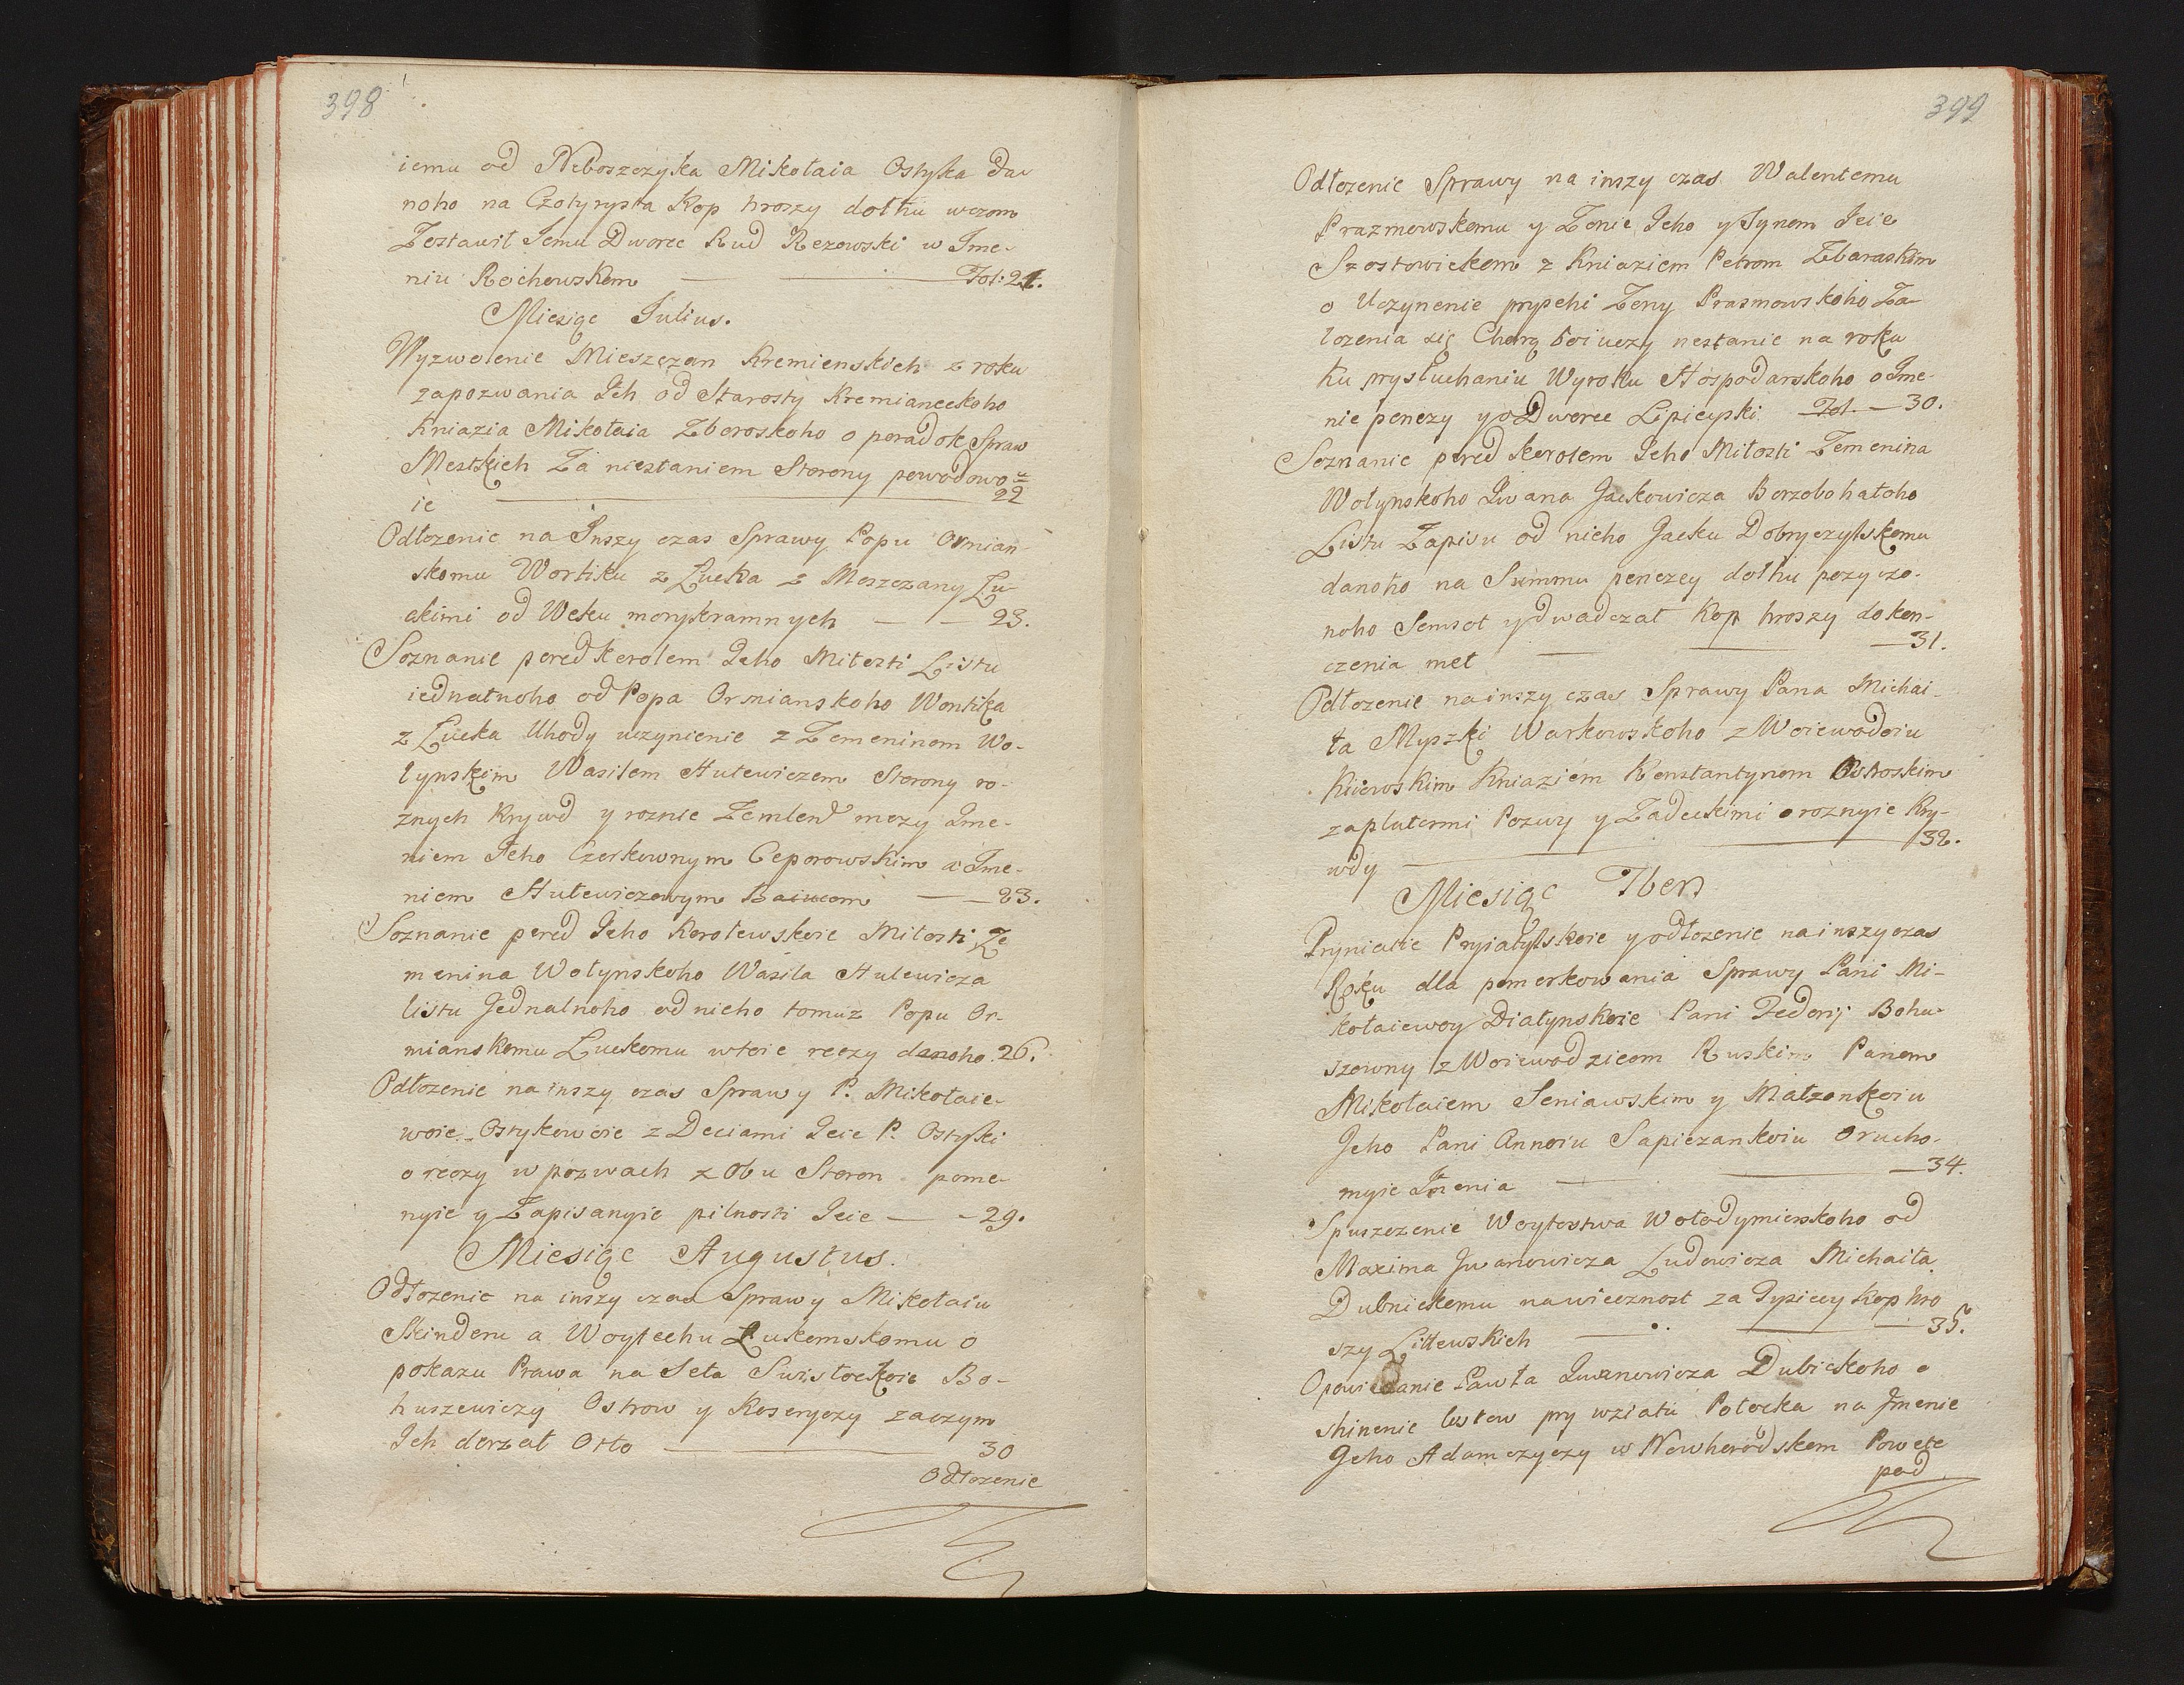 398
iemu od Neboszczyka Mikołaia Ostyka da-
noho na Czotyrysta Kop hroszy dołhu wczom
Zostawił Jemu Dworec Rud Rezowski w Jme-
niu Rochowskom Fol: 21.
Miesiąc Julius.
Wyzwolenie Mieszczan Kremienskich z roku
zapozwania Jch od Starosty Kremianeckoho
Kniazia Mikołaia Zboroskoho o poradok Spraw
Mestskich Za niestaniem Storony powodowo=
ie 22
Odłozenie na Jnszy czas Sprawy Popu Ormian-
skomu Wortiku z Łucka z Meszczany Łu-
ckimi od Weku morykramnych 23.
Soznanie pered Korolem Jeho Miłosti Listu
iednalnoho od Popa Ormianskoho Wontika
z Łucka Uhody uczynienie z Zemeninom Wo-
łynskim Wasilem Hulewiczem Storony ro-
znych Krywd y roznic Zemlend mezy Jme-
niem Jeho Czerkownym Ceporowskim a Jme-
niem Hulewiczowym Baiwom 23.
Soznanie pered Jeho Korolewskoie Miłosti Ze
menina Wołynskoho Wasila Hulewicza
listu Jednalnoho od nieho tomuz Popu Or-
mianskomu Łuckomu wtoie reczy danoho. 26.
Odłozenie na inszy czas Sprawy P. Mikołaie-
woie Ostykowoie z Deciami Jeie P. Ostyki
o reczy w pozwach z Obu Storon pome-
nyie y Zapisanyie pilnosti Jeie 29.
Miesiąc Augustus.
Odłozenie na inszy czas Sprawy Mikołaiu
Skinderu a Woytechu Łukomskomu o
pokazu Prawa na Seła Swisłockoie Bo-
huszewiczy Ostrow y Koserycry zaczym
Jch derzał Otto 30
Odłozenie
399
Odłozenie Sprawy na inszy czas Walentemu
Prazmowskomu y Zonie Jeho y Synom Jeie
Szostowickom z Kniaziem Petrom Zbaraskim
o Uczynenie prysehi Zony Prasmowskoho Za-
łozenia się Chorą boiuczy nestanie na roku
ku prysłuchaniu Wyroku Hospodarskoho o Jme-
nie penezy y o Dworec Lipieyski Fol. 30.
Soznanie pered Korolem Jeho Miłosti Zemenina
Wołynskoho Jwana Jackowicza Borzobohatoho
Listu Zapisu od nieho Jacku Dobryczylskomu
danoho na Summu penezey dołhu pozyczo-
noho Semsot y dwadczat Kop hroszy do kon-
czenia met 31.
Odłozenie na inszy czas Sprawy Pana Michai-
ła Myszki Warkowskoho z Woiewodoiu
Kiiewskim Kniaziem Konstantynom Ostroskim
zaplutermi Pozwy y Zadeckimi o roznyie Kry-
wdy 32.
Miesiąc 7ber
Pryniatie Pryiatylskoie y odłozenie na inszy czas
Roku dla pomerkowania Sprawy Pani Mi-
kołaiewoy Diatynskoie Pani Fedorij Bohu-
szowny z Woiewodzicom Ruskim Panom
Mikołaiem Seniawskim y Małzonkoiu
Jeho Pani Annoiu Sapiezankoiu o rucho-
myie Jmenia 34.
Spuszczenie Woytostwa Wołodymierskoho od
Maxima Jwanowicza Ludowicza Michaiła
Dubnickomu na wiecznost za Tysiecy Kop hro
szy Littewskich 35.
Opowiedanie Pawła Jwanowicza Dubickoho o
shinenie listow pry wziatu Potocka na Jmenie
Jeho Adamczyczy w Nowhorodskom Powete
pod